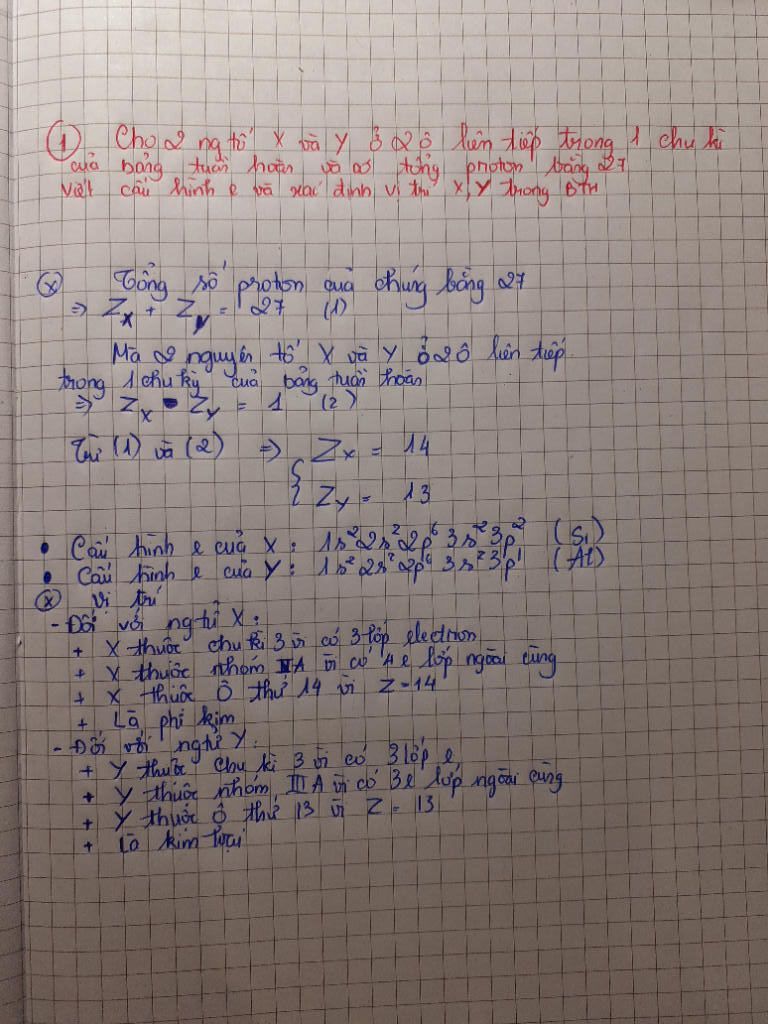 ① Cho 2 ng tố X và Y ở 2 ô liên tiếp trong 1 chu kì
của bảng tuần hoàn và có tổng proton bằng 27
Viết cấu hình e và xác định vị trí X, Y trong BTH
ⓧ Tổng số proton của chúng bằng 27
⇒ Z_X + Z_Y = 27 (1)
Mà 2 nguyên tố X và Y ở 2 ô liên tiếp
trong 1 chu kỳ của bảng tuần hoàn
⇒ Z_X - Z_Y = 1 (2)
Từ (1) và (2) ⇒ { Z_X = 14
Z_Y = 13
• Cấu hình e của X: 1s²2s²2p⁶3s²3p² (Si)
• Cấu hình e của Y: 1s²2s²2p⁶3s²3p¹ (Al)
ⓧ Vị trí
- Đối với ngtử X:
+ X thuộc chu kì 3 vì có 3 lớp electron
+ X thuộc nhóm A vì có 4e lớp ngoài cùng
+ X thuộc ô thứ 14 vì Z = 14
+ Là phi kim
- Đối với ngtử Y:
+ Y thuộc chu kì 3 vì có 3 lớp e
+ Y thuộc nhóm IIIA vì có 3e lớp ngoài cùng
+ Y thuộc ô thứ 13 vì Z = 13
+ Là kim loại